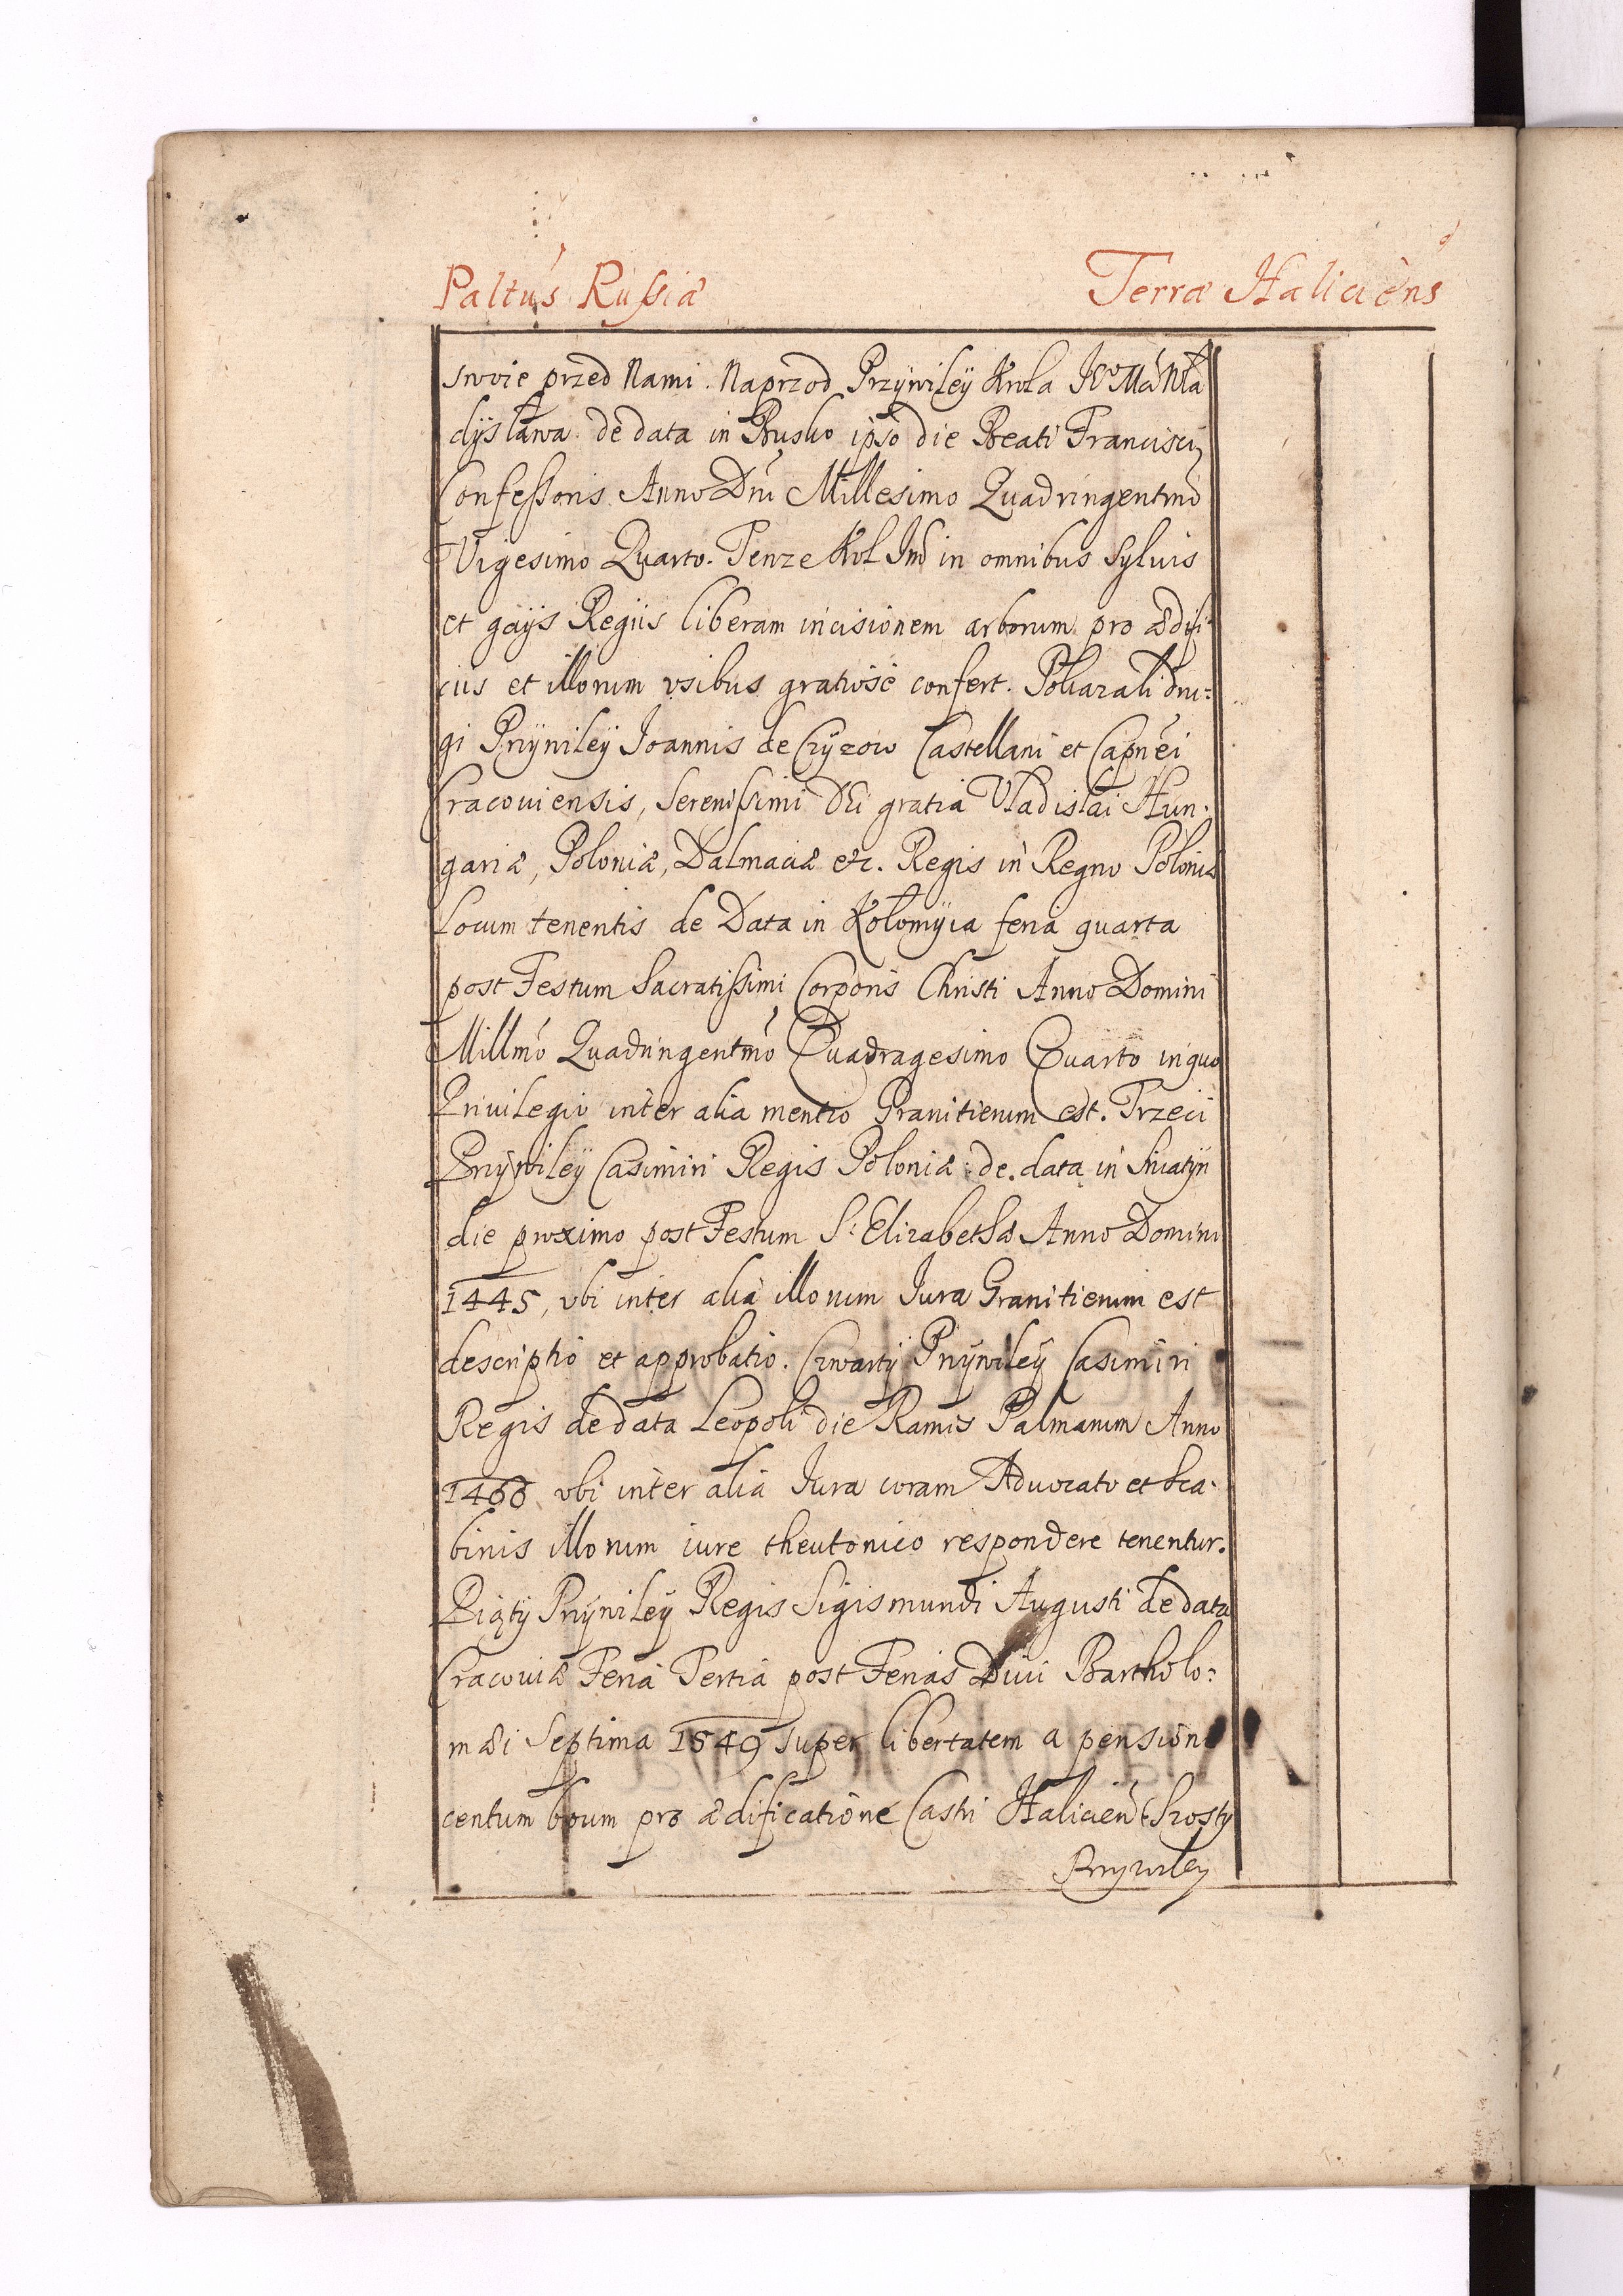 Paltus Russiæ
Terræ Haliciens
swoie przed Nami. Naprzod Przywiley Krola JKo Ma Wła
dysława de data in Busko ipso die Beati Francisci
Confessoris Anno Dni Millesimo Quadringentmo
Vigesimo Quarto. Tenze Krol Jm in omnibus Syluis
et gayis Regiis liberam incisionem arborum pro ædifi
ciis et illorum vsibus gratiose confert. Pokazali dru=
gi Przywiley Joannis de Czyzow Castellani et Capnei
Cracouiensis, Serenissimi Dei gratia Vladislai Hun.
gariæ, Poloniæ, Dalmaciæ etc. Regis in Regno Poloniæ
Locum tenentis de Data in Kołomyia feria quarta
post Festum Sacratissimi Corporis Christi Anno Domini
Millmo Quadringentmo Quadragesimo Quarto in quo
Priuilegio inter alia mentio Granitierum est. Trzeci
Przywiley Casimiri Regis Poloniæ de data in Sniatyn
die proximo post Festum S. Elizabethæ Anno Domini
1445, vbi inter alia illorum Jura Granitierum est
descriptio et approbatio. Czwarty Przywiley Casimiri
Regis de data Leopoli die Ramis Palmarum Anno
1466 vbi inter alia Jura coram Aduocato et Sca.
binis illorum iure theutonico respondere tenentur.
Piąty Przywiley Regis Sigismundi Augusti de data
Cracouiæ Feria Tertia post Ferias Diui Bartholo=
mæi Septima 1549 super libertatem a pensione
centum boum pro ædificatione Castri Halicien Szosty
Przywiley